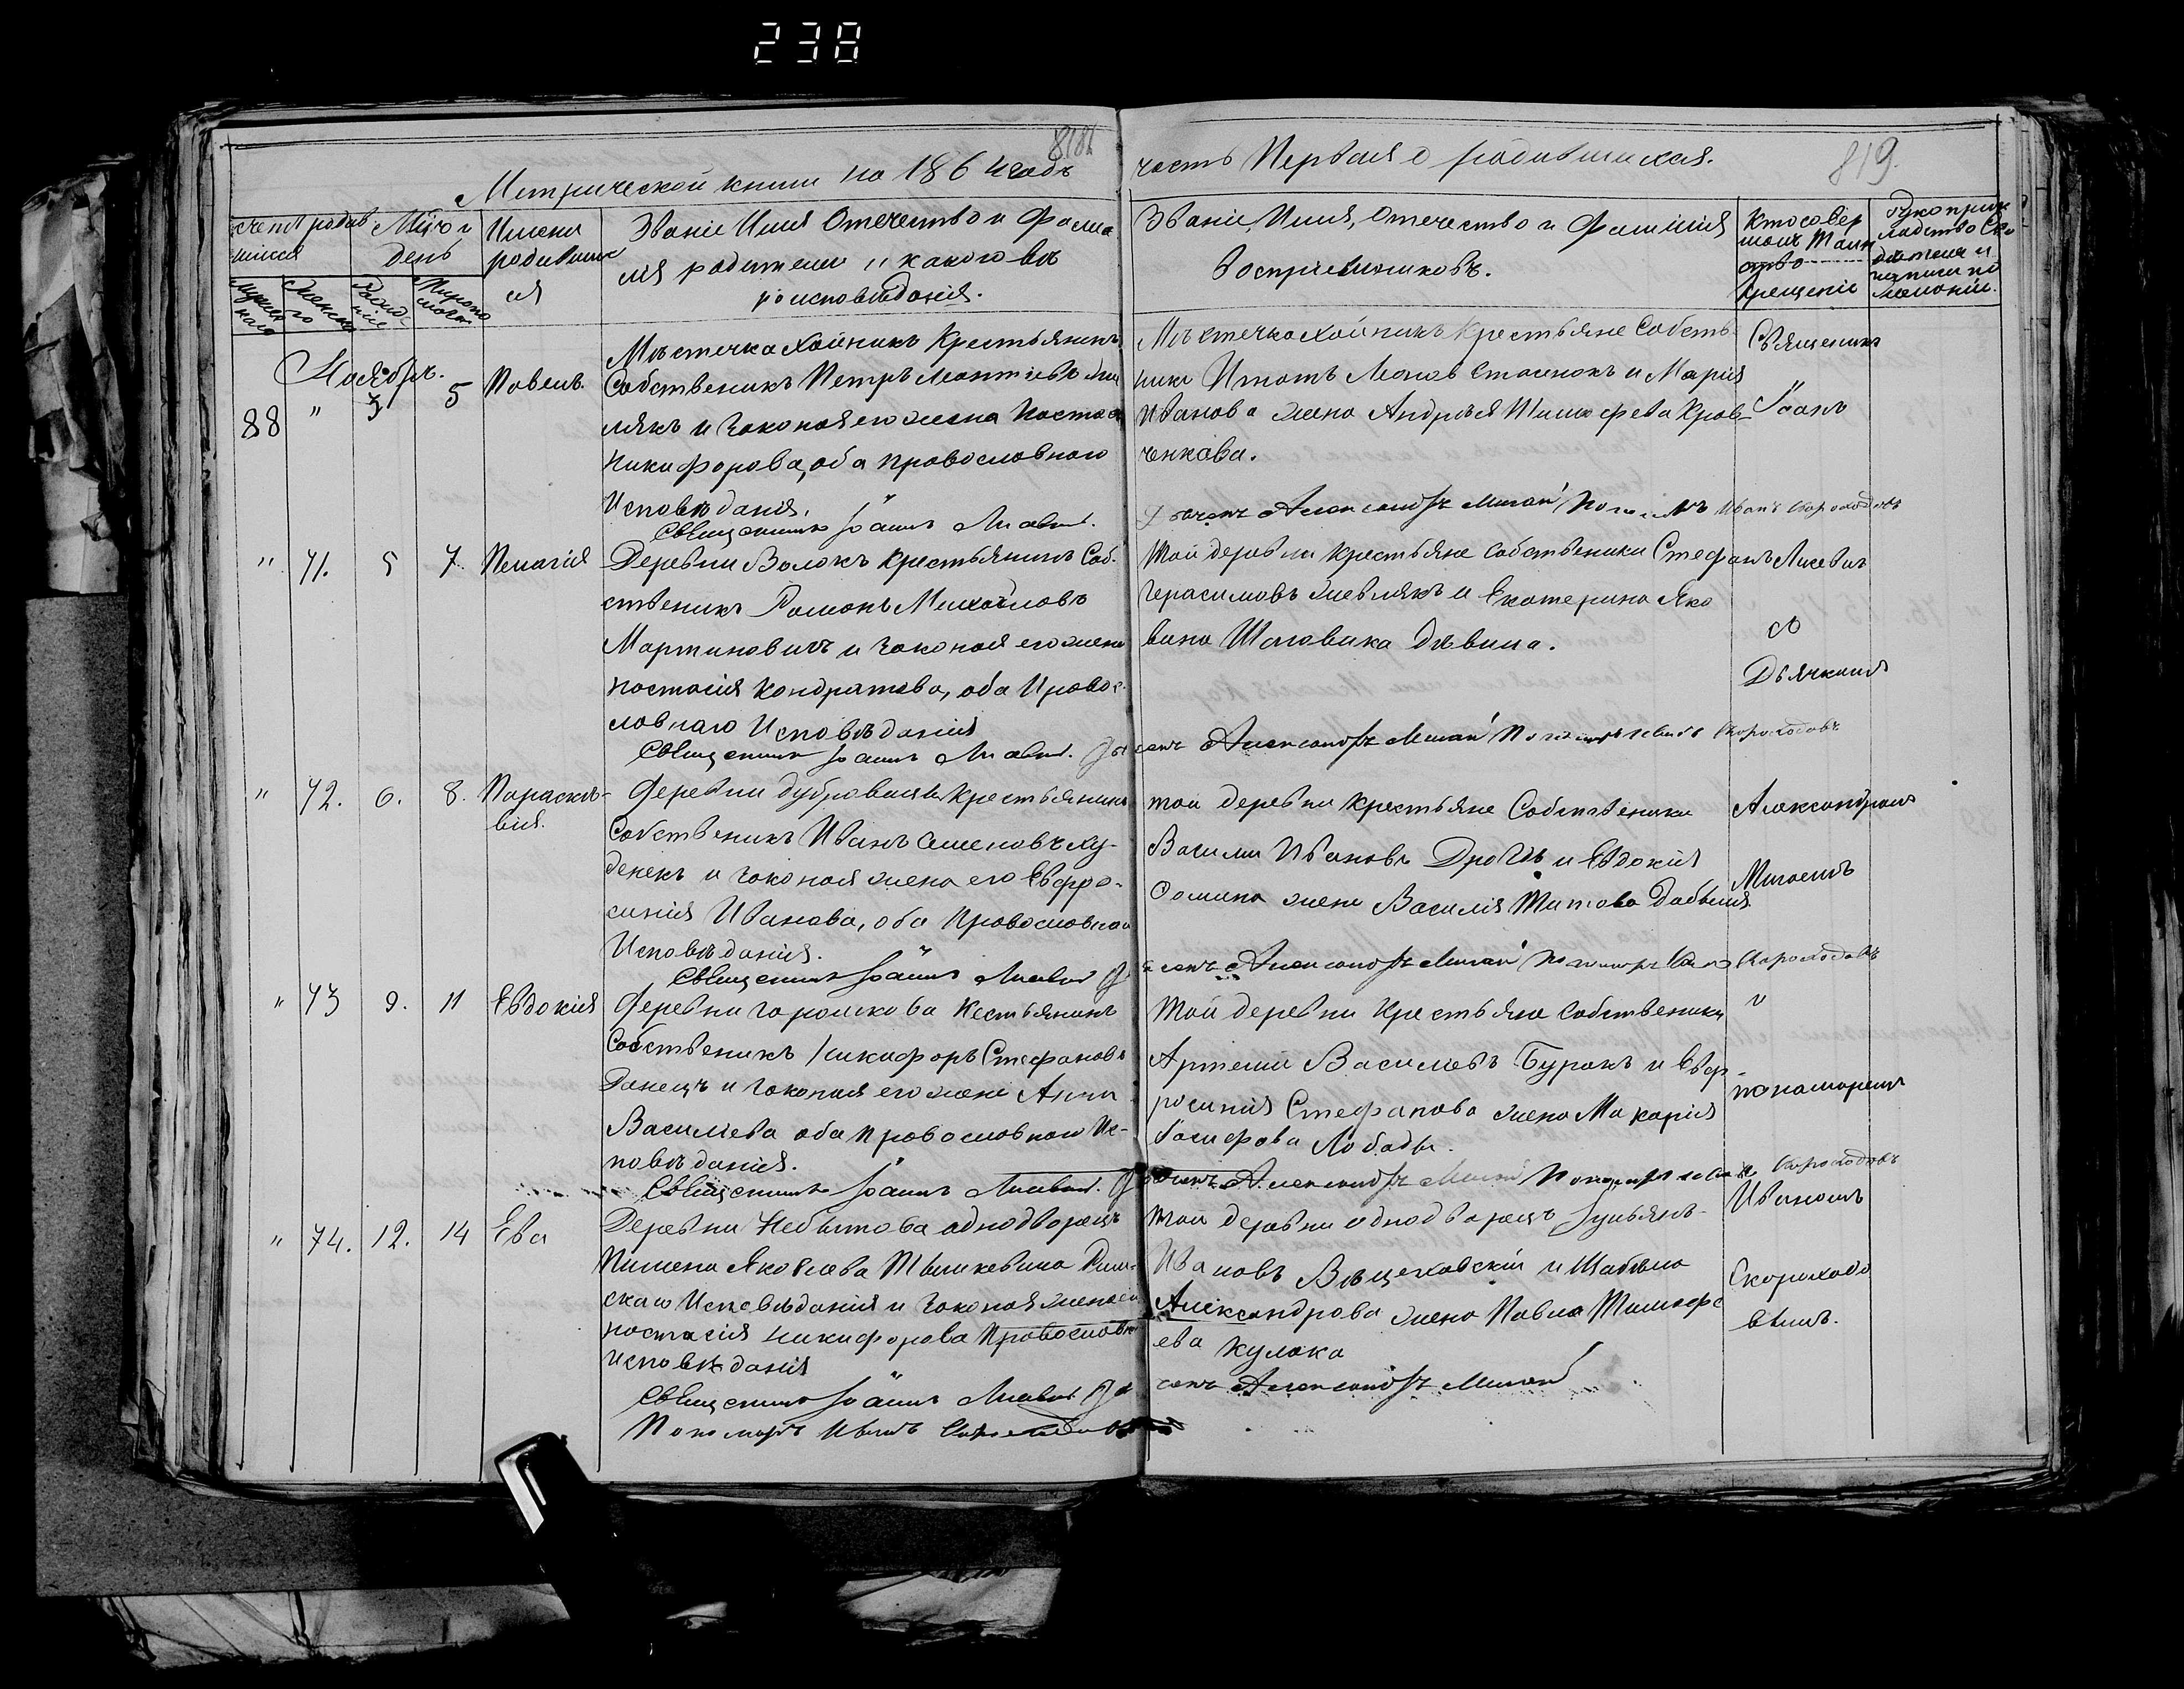 238
818
819.
Метрической книги на 1864 годъ
часть Первая о родившихся.
Счетъ родив
шихся
Мѣсяцъ и
день
Имена
родивших
ся
Званіе Имя Отечество и Фами
лія родителей и какого вѣ
роисповѣданія.
Званіе, Имя, Отечество и Фамилія
Воспріемниковъ.
Кто совер
шалъ Таин
ство
крещенія
Рукоприк
ладство Сви
дѣтелей
Ноябрь.
88 " 3 5 Павелъ.
Мѣстечка Хойникъ Крестьянинъ
Собственикъ Петръ Леонтіевъ
и законая его жена Настас
Никифорова, оба православного
Исповѣданія.
Священникъ Іоаннъ
Мѣстечка Хойникъ Крестьяне Собств
ники Игнатъ и Марія
Иванова жена Андрѣя Тимофева Крав
ченкова.
Дьячекъ Александръ Мигай Пономарь Иванъ Скороходовъ
Священикъ
Іоанъ
" 71. 5 7. Пелагія
Деревни Волокъ Крестьянинъ Соб.
ственикъ Романъ Михайловъ
Мартиновичъ и законая его жена
Настасія Кондратова, оба Правос
лавнаго Исповѣданія
Священникъ Іоаннъ
Той деревни Крестьяне собственики Стефанъ
Герасимовъ и Екатерина Яко
вина дѣвица.
Дьячекъ Александръ Мигай Пономарь Иванъ Скороходовъ
съ
Дьячкомъ
" 72. 6. 8. Параскѣ-
вія.
Деревни дубровицы Крестьянинъ
Собственикъ Иванъ Семеновъ Ху-
денекъ и законая жена его Евфро-
синія Иванова, оба Православнаго
Исповѣданія.
Священникъ Іоаннъ
той деревни Крестьяне Собственики
Василій Ивановъ и Евдокія
Фомина жена Василія Титова
Дьячекъ Александръ Мигай Пономарь Иванъ Скороходовъ
Александромъ
Мигаемъ
" 73 9. 11 Евдокія
Деревни Горошкова Кестьянинъ
Собственикъ Никифоръ Стефановъ
Данецъ и законая его жена Анна
Василіева оба православнаго Ис-
повѣданія.
Священникъ Іоаннъ
Той деревни Крестьяне собственики
Артемій Василіевъ Буракъ и Евф-
росинія Стефанова жена Макарія
Іосифова Лобады.
Дьячекъ Александръ Мигай Пономарь Иванъ Скороходовъ
и
пономаремъ
Иваномъ
" 74. 12. 14 Ева
Деревни Небытова однодворецъ
Пимена Яковлева Тышкевича Рим
скаго Исповѣданія и законая жена его
Настасія Никифорова Православн
Исповѣданія
Священникъ Іоаннъ
Пономарь Иванъ Скороходовъ
той деревни однодворецъ
Ивановъ и
Александрова жена Павла Тимофе
ева Кулака
Дьячекъ Александръ Мигай
Скороходо
вымъ.